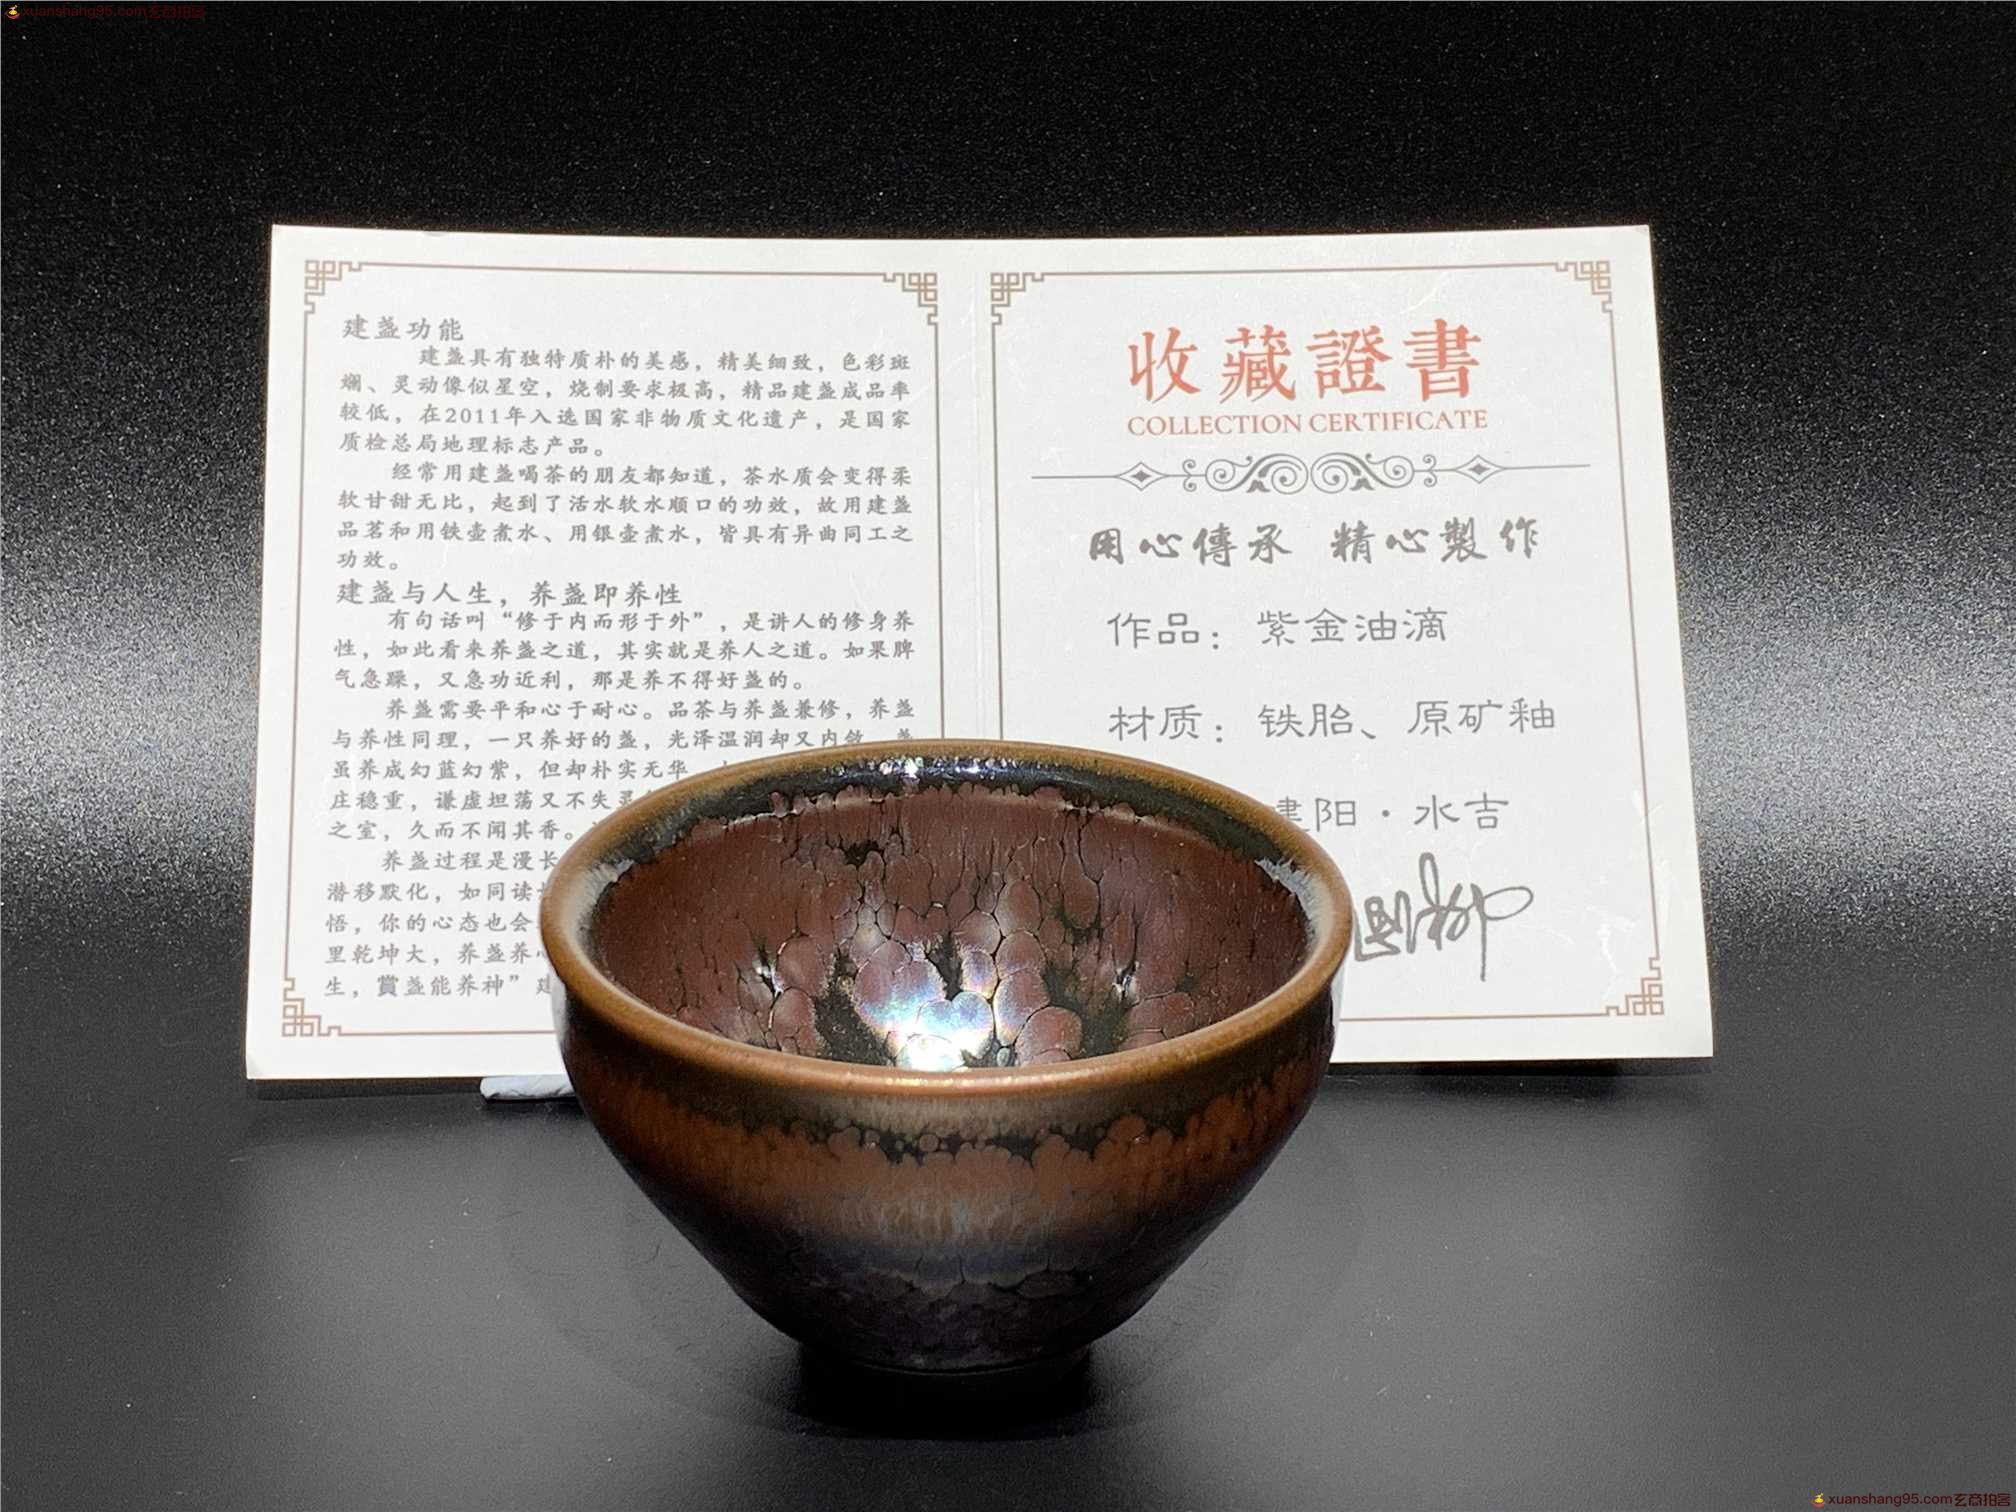 xuanshang95.com玄商拍客
建盏功能
建盏具有独特质朴的美感，精美细致，色彩斑
斓、灵动像似星空，烧制要求极高，精品建盏成品率
较低，在2011年入选国家非物质文化遗产，是国家
质检总局地理标志产品。
经常用建盏喝茶的朋友都知道，茶水质会变得柔
软甘甜无比，起到了活水软水顺口的功效，故用建盏
品茗和用铁壶煮水、用银壶煮水，皆具有异曲同工之
功效。
建盏与人生，养盏即养性
有句话叫“修于内而形于外”，是讲人的修身养
性，如此看来养盏之道，其实就是养人之道。如果脾
气急躁，又急功近利，那是养不得好盏的。
养盏需要平和心于耐心。品茶与养盏兼修，养盏
与养性同理，一只养好的盏，光泽温润却又内敛，盏
虽养成幻蓝幻紫，但却朴实无华
庄稳重，谦虚坦荡又不失灵
之室，久而不闻其香。
养盏过程是漫长
潜移默化，如同读
悟，你的心态也会
里乾坤大，养盏养心
生，賞盏能养神”建
收藏證書
COLLECTION CERTIFICATE
用心傳承 精心製作
作品：紫金油滴
材质：铁胎、原矿釉
建阳·水吉
xuanshang95.com玄商拍客